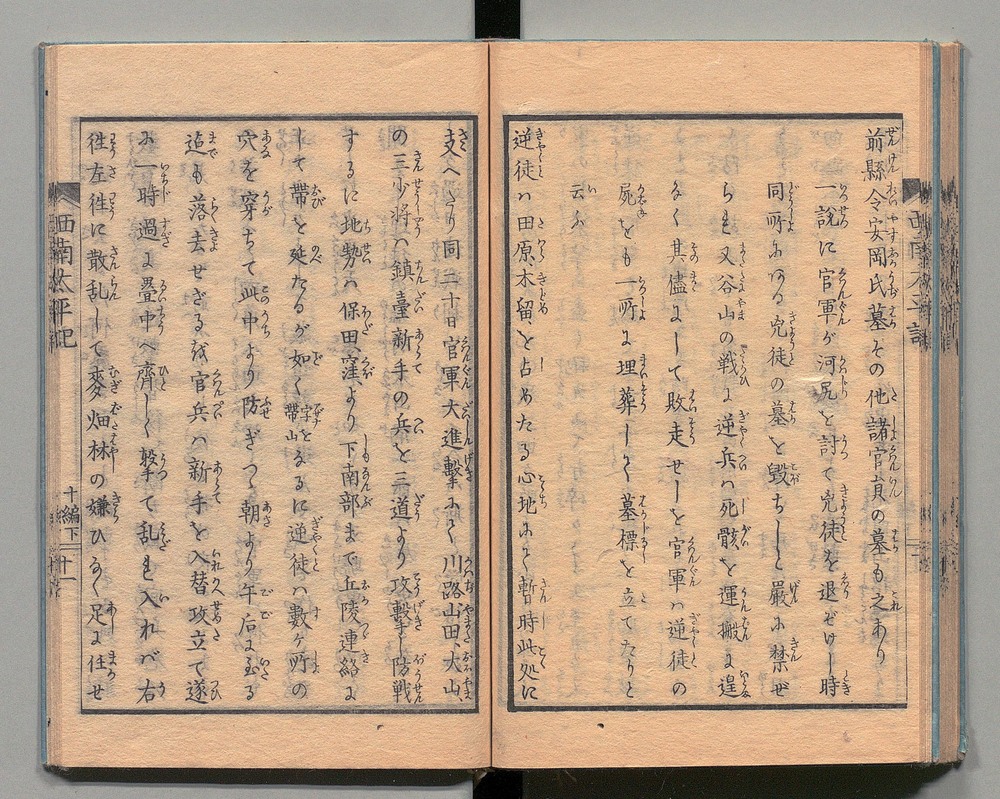 前縣令安岡氏墓その他諸官員の墓も之あり
一説に官軍が河尻を討て兇徒を退ぞけし時
同所にある兇徒の墓を毀ちしを嚴に禁ぜ
らも又谷山の戦に逆兵の死骸を運搬に遑
なく其儘にして敗走せしを官軍は逆徒の
屍をも一所に埋葬しく墓標を立てたりと
云ふ
逆徒ハ田原木留を占めたる心地にて暫時此処に
支へたり同三十日官軍大進撃にて川路山田大山
の三少将ハ鎮臺新手の兵を三道より攻撃し防戦
するに地勢ハ保田窪より下南部まで丘陵連絡に
して帯を延たるが如く字を帶山なるに逆徒ハ數ヶ所の
穴を穿ちて此中より防ぎつゝ朝より午后に至る
迄も落去せざる故官兵ハ新手を入替攻立て遂
に一時過に畳中へ齊しく撃て乱れ入れバ右
徃左徃に散乱して麥畑林の嫌ひなく足に任せ
西南太平記
十編下
十一